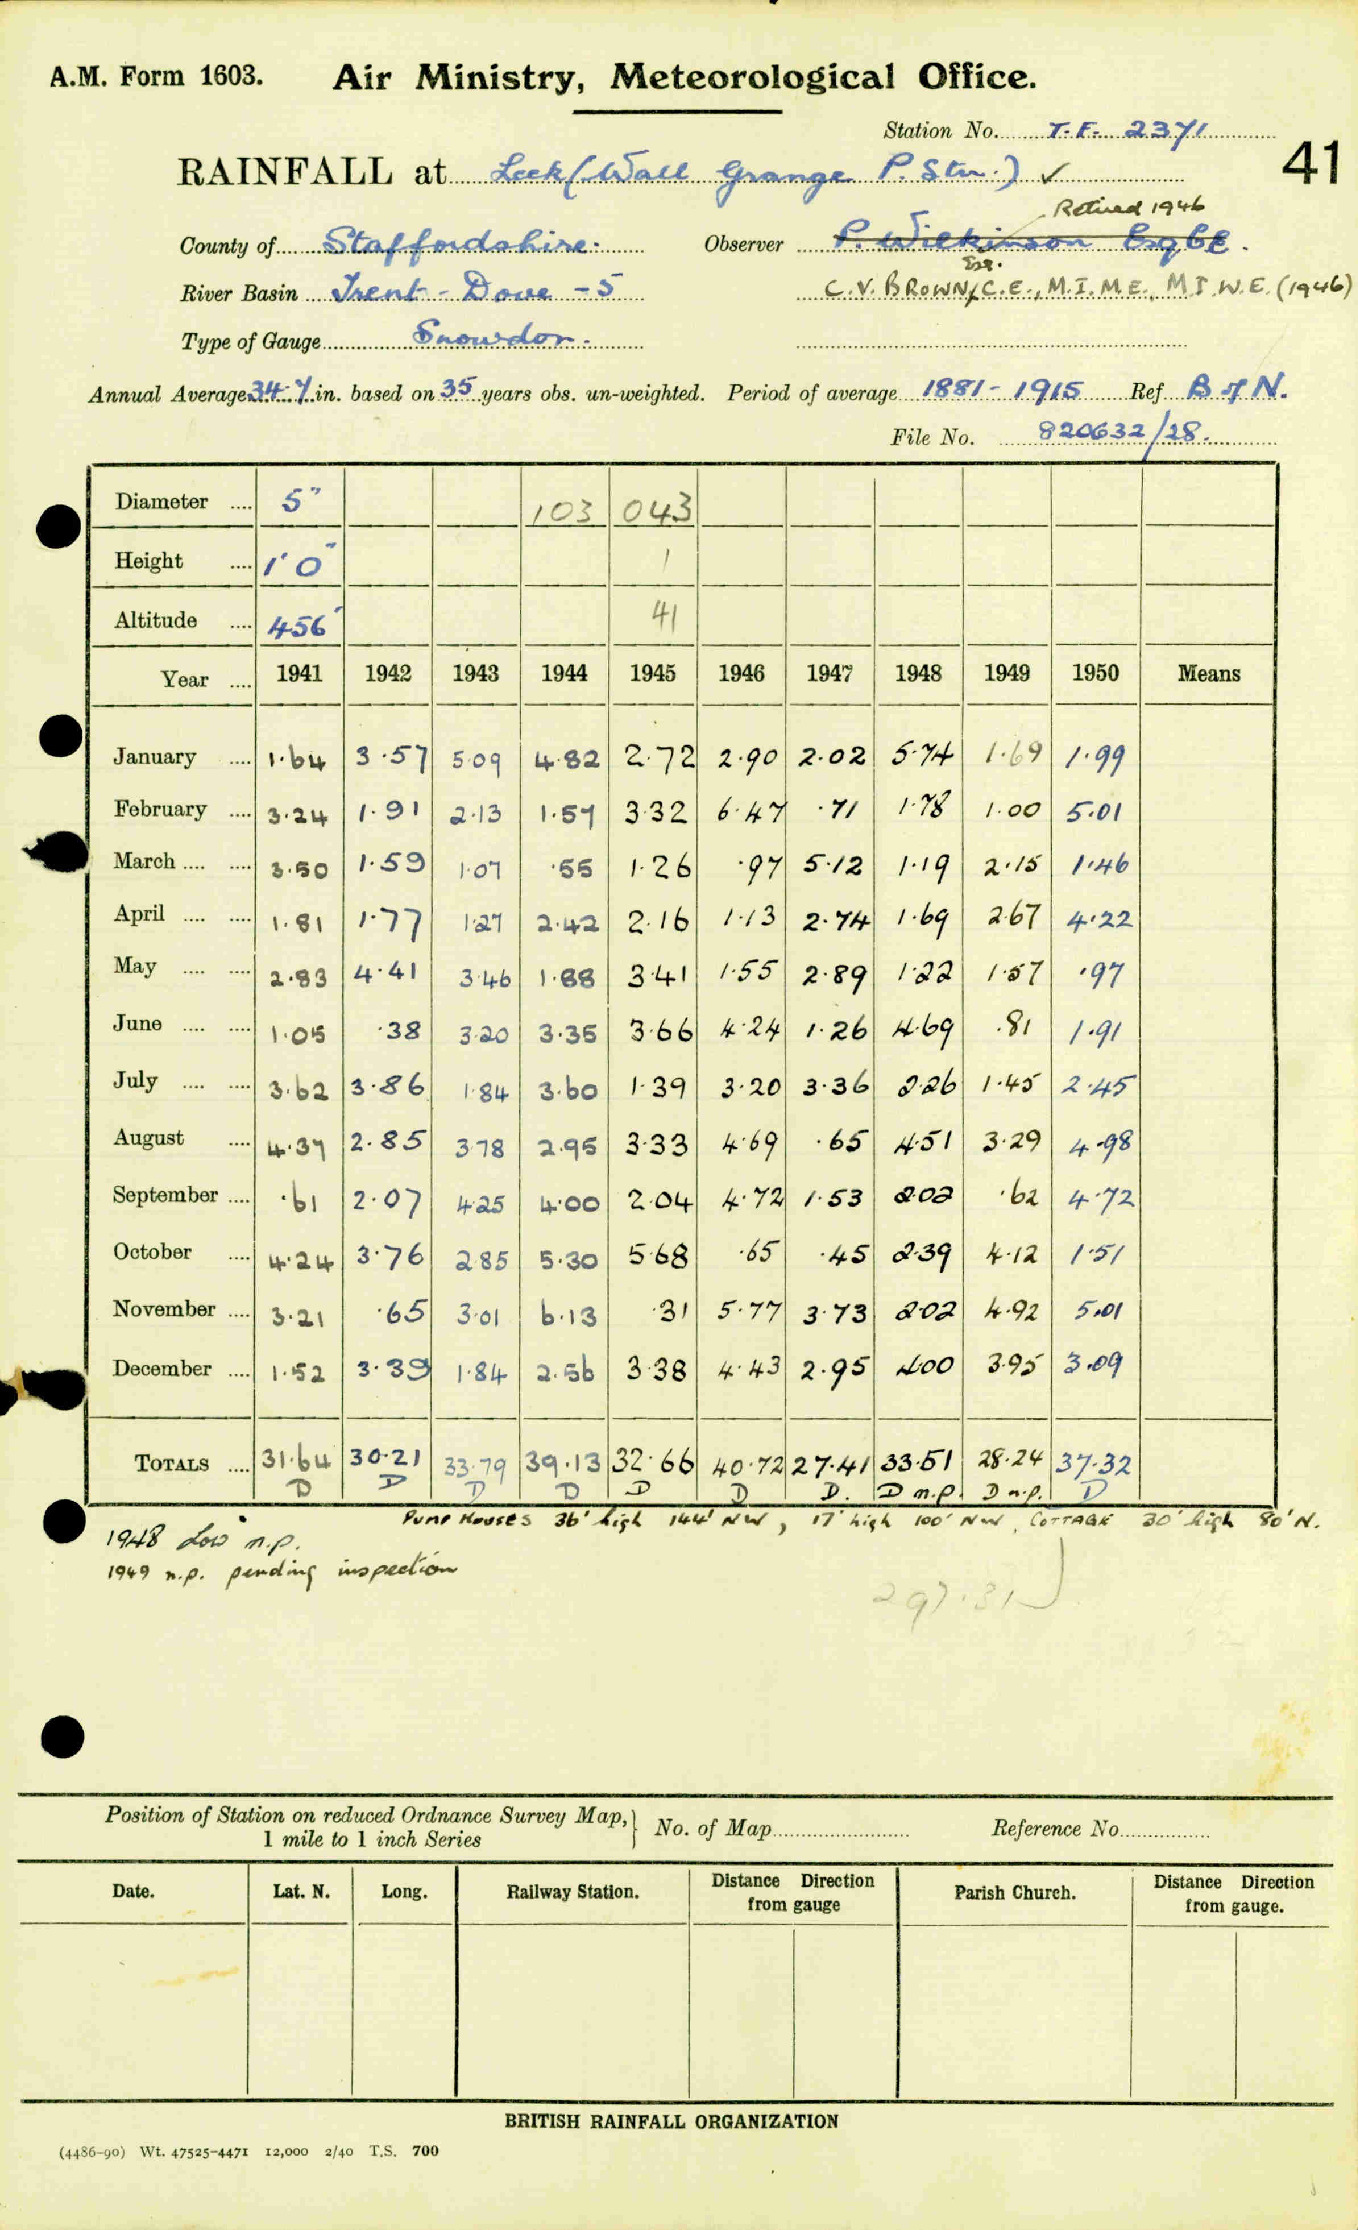 A.M. Form 1603. Air Ministry, Meteorological Office.
Station No. T.F. 2371
41
RAINFALL at Leek (Wall Grange P. Stn.) ✓
Retired 1946
County of Staffordshire. Observer P. Wilkinson Esq CE.
Esq.
River Basin Trent - Dove - 5 C.V. BROWN, C.E., M.I.M.E., M.I.W.E. (1946)
Type of Gauge Snowdon.
Annual Average 34.7 in. based on 35 years obs. un-weighted. Period of average 1881 - 1915 Ref B of N.
File No. 820632/28.
Diameter .... 5" 103 043
Height .... 1' 0" 1
Altitude .... 456' 41
Year .... 1941 1942 1943 1944 1945 1946 1947 1948 1949 1950 Means
January .... 1.64 3.57 5.09 4.82 2.72 2.90 2.02 5.74 1.69 1.99
February .... 3.24 1.91 2.13 1.57 3.32 6.47 .71 1.78 1.00 5.01
March .... .... 3.50 1.59 1.07 .55 1.26 .97 5.12 1.19 2.15 1.46
April .... .... 1.81 1.77 1.27 2.42 2.16 1.13 2.74 1.69 2.67 4.22
May .... .... 2.83 4.41 3.46 1.88 3.41 1.55 2.89 1.22 1.57 .97
June .... .... 1.05 .38 3.20 3.35 3.66 4.24 1.26 4.69 .81 1.91
July .... .... 3.62 3.86 1.84 3.60 1.39 3.20 3.36 2.26 1.45 2.45
August .... 4.37 2.85 3.78 2.95 3.33 4.69 .65 4.51 3.29 4.98
September .... .61 2.07 4.25 4.00 2.04 4.72 1.53 2.02 .62 4.72
October .... 4.24 3.76 2.85 5.30 5.68 .65 .45 2.39 4.12 1.51
November .... 3.21 .65 3.01 6.13 .31 5.77 3.73 2.02 4.92 5.01
December .... 1.52 3.39 1.84 2.56 3.38 4.43 2.95 4.00 3.95 3.09
TOTALS .... 31.64 30.21 33.79 39.13 32.66 40.72 27.41 33.51 28.24 37.32
D D D D D D D. D n.p. D n.p. D
PUMP HOUSES 36' high 144' NW, 17' high 100' NW, COTTAGE 30' high 80' N.
1948 Low n.p.
1949 n.p. pending inspection
297.31
Position of Station on reduced Ordnance Survey Map,
1 mile to 1 inch Series
No. of Map Reference No.
Date. Lat. N. Long. Railway Station. Distance from gauge Direction Parish Church. Distance Direction
from gauge.
BRITISH RAINFALL ORGANIZATION
(4486-90) Wt. 47525-4471 12,000 2/40 T.S. 700